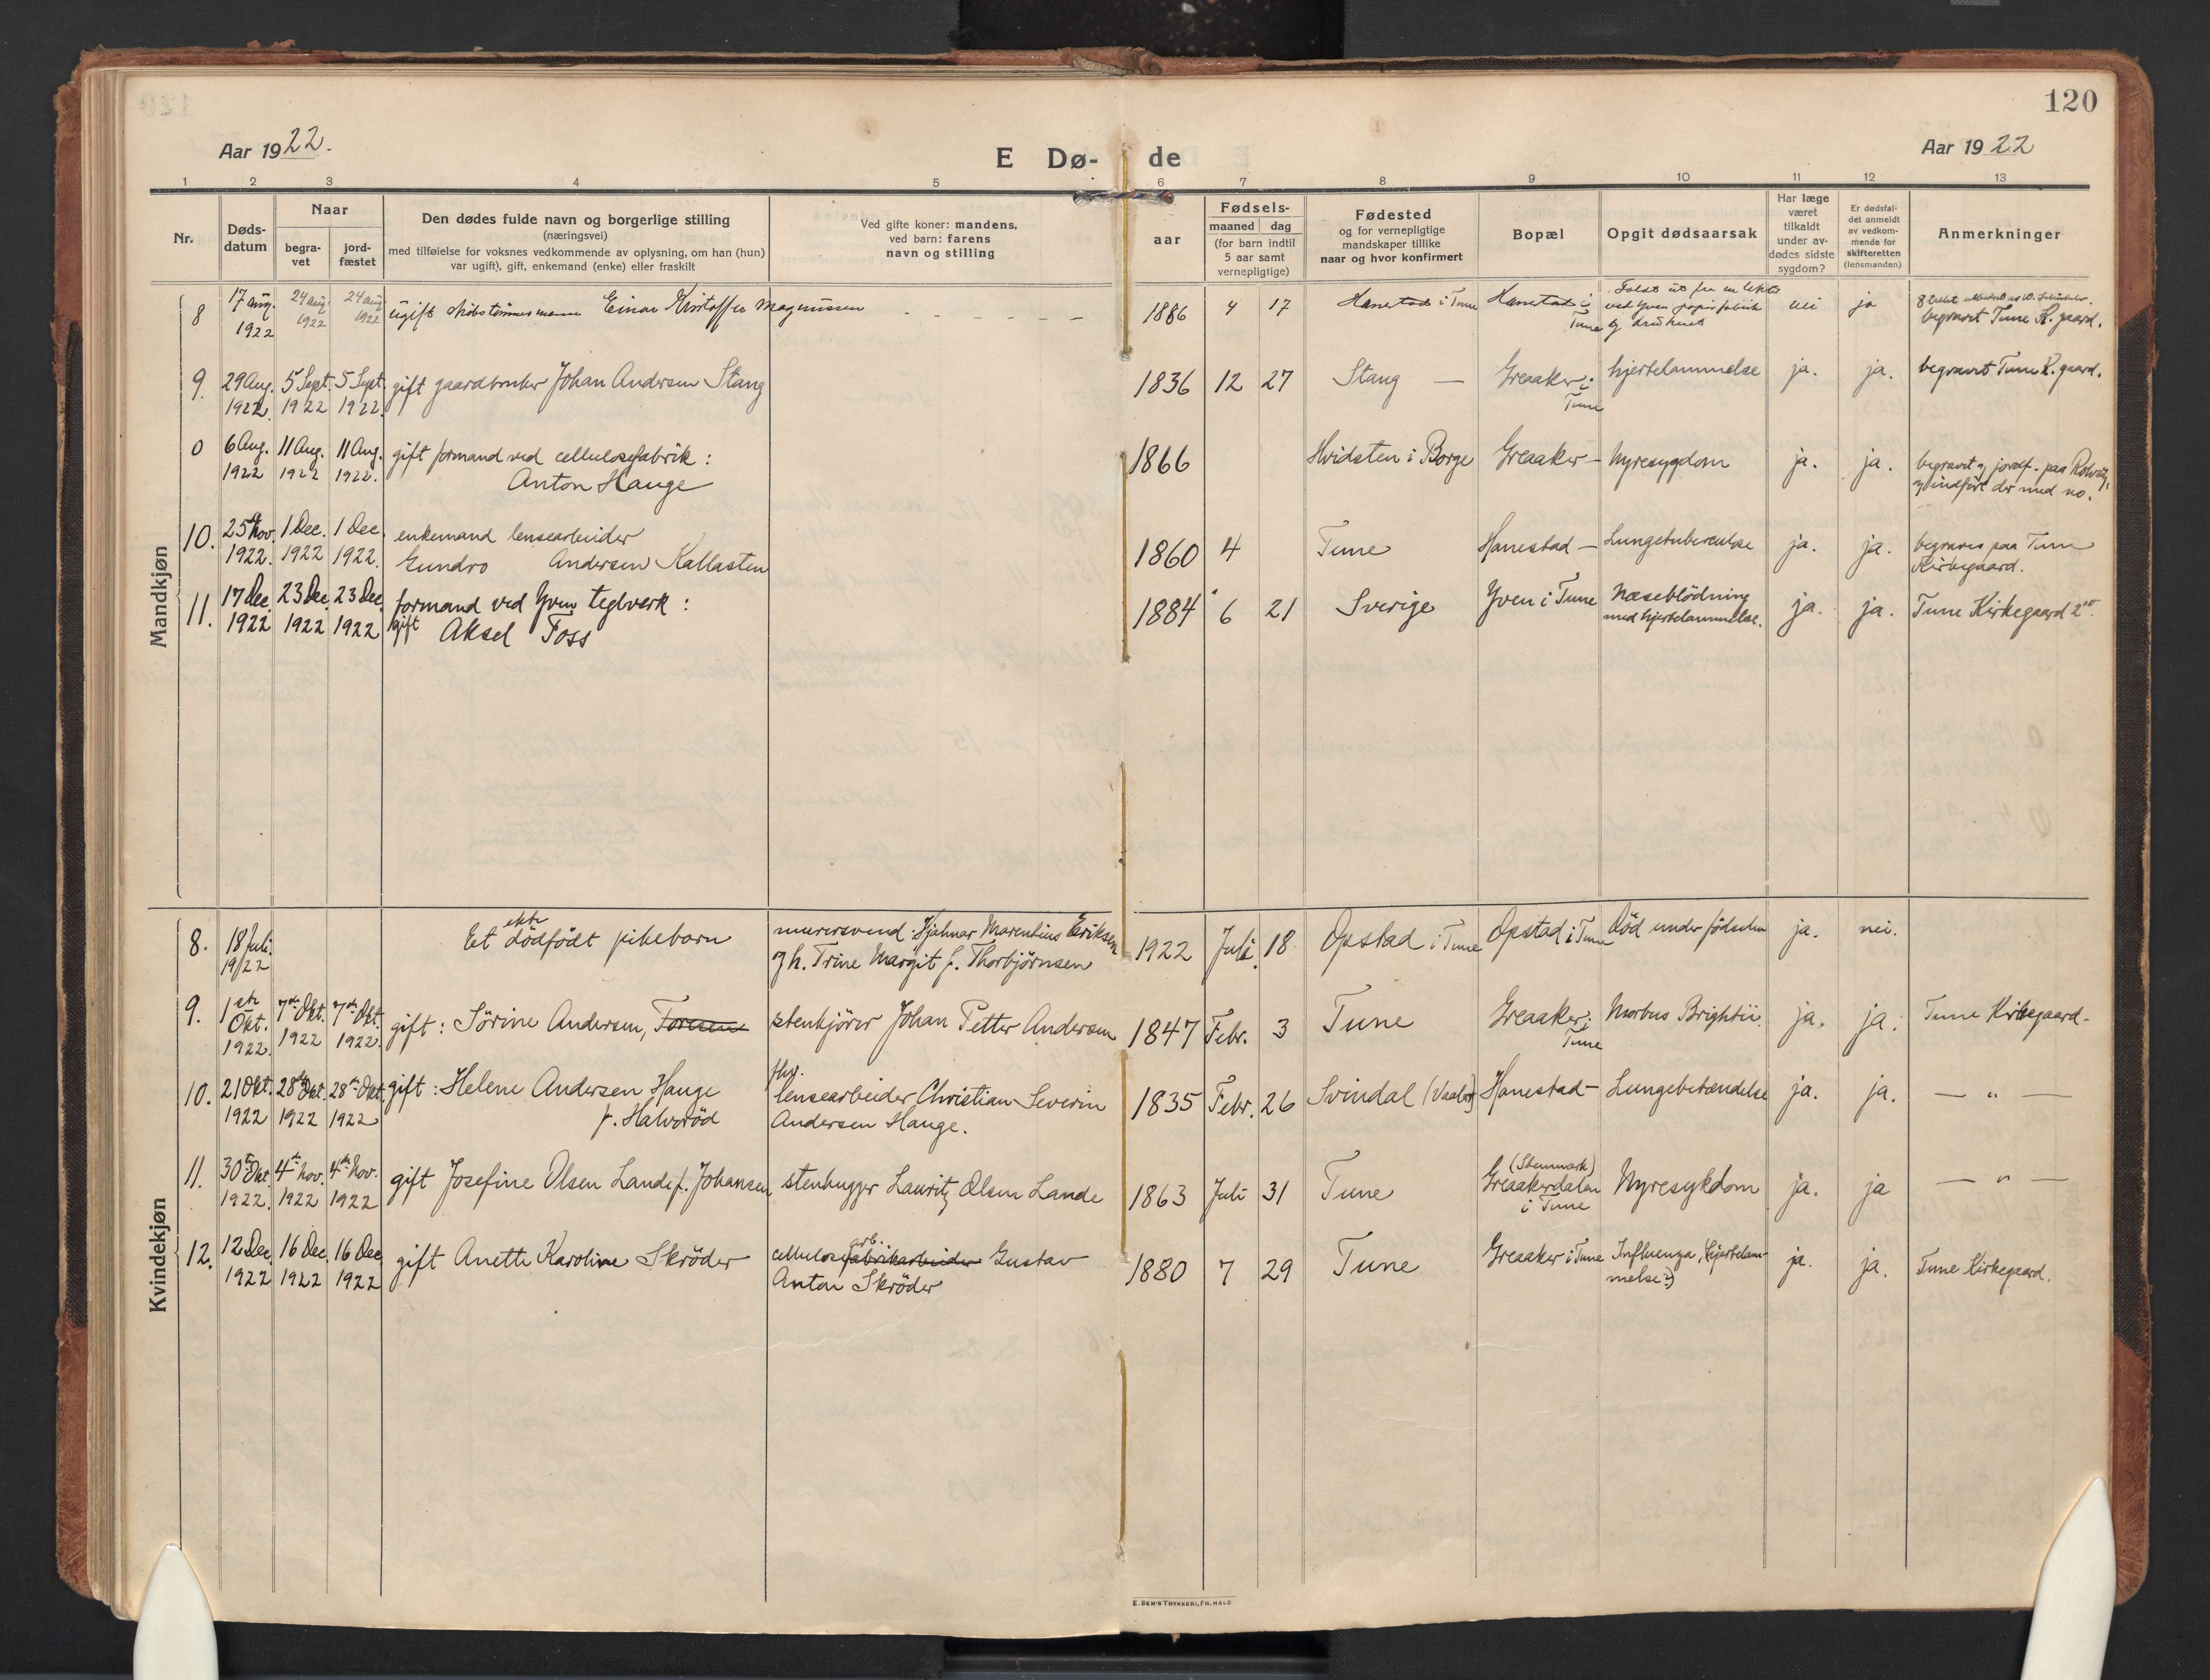 120
Aar 1922.
E Dø- de
Aar 1922
1 2 3 4 5 6 7 8 9 10 11 12 13
Nr.
Døds-
datum
Naar
begra-
vet
jord-
fæstet
Den dødes fulde navn og borgerlige stilling
(næringsvei)
med tilføielse for voksnes vedkommende av oplysning, om han (hun)
var ugift), gift, enkemand (enke) eller fraskilt
Ved gifte koner: mandens,
ved barn: farens
navn og stilling
aar
Fødsels-
maaned dag
(for barn indtil
5 aar samt
vernepligtige)
Fødested
og for vernepligtige
mandskaper tillike
naar og hvor konfirmert
Bopæl
Opgit dødsaarsak
Har læge
været
tilkaldt
under av-
dødes sidste
sygdom?
Er dødsfal-
det anmeldt
av vedkom-
mende for
skifteretten
(lensmanden)
Anmerkninger
Mandkjøn
8
17 aug.
1922
24 aug.
1922
24 aug
1922
ugift skibstömmermann Einar Kristoffer Magnussen
1886
4
17
Hanestad i Tune
Hanestad i
Tune
ved Yven papirfabrik
og druknet
nei
ja
begravet Tune K. gaard.
9.
29 Aug.
1922.
5 Sept.
1922
5 Sept.
1922.
gift gaardbruker Johan Andersen Stang
1836
12
27
Stang —
Greaaker i
Tune
hjertelammelse
ja.
ja.
begravet Tune K. gaard.
0
6 Aug.
1922
11 Aug.
1922
11 Aug.
1922.
gift formand ved cellulosefabrik:
Anton Hauge
1866
Hvidsten i Borge
Greaaker —
Nyresygdom
ja.
ja.
begravet og jordf. paa Rolvsøy,
og indført der med no.
10.
25 Nov.
1922.
1 Dec.
1922
1 Dec.
1922.
enkemand lensearbeider
Gundro Andersen Kallasten
1860
4
Tune
Hanestad —
Lungetuberculose
ja.
ja.
begraves paa Tune
Kirkegaard.
11.
17 Dec.
1922
23 Dec.
1922
23 Dec.
1922
formand ved Yven teglverk:
gift Aksel Foss
1884
6
21
Sverige
Yven i Tune
Næseblödning
med hjertelammelse.
ja.
ja.
Tune Kirkegaard
Kvindekjøn
8.
18 Juli
19/22
ekte
Et dödfödt pikebarn
murersvend: Hjalmar Marentius Eriksen
og h. Trine Margit f. Thorbjörnsen
1922
Juli.
18
Opstad i Tune
Opstad i Tune
Död under fødselen
ja.
nei.
9.
1ste
Okt.
1922.
7de Okt.
1922
7de Okt.
1922.
gift: Sörine Andersen, Foresen
stenkjörer Johan Petter Andersen
1847
Febr.
3
Tune
Greaaker i
Tune
Morbus Brightii
ja.
ja.
Tune Kirkegaard.
10.
21 Okt.
1922
28de Okt.
1922
28de Okt.
1922
gift: Helene Andersen Hauge
f. Halvoröd
fhv.
lensearbeider Christian Severin
Andersen Hauge.
1835
Febr.
26
Svindal (Vaaler)
Hanestad —
Lungebetændelse
ja.
ja.
— " —
11.
30te Okt.
1922.
4de Nov.
1922
4de Nov.
1922
gift Josefine Olsen Lande f. Johansen
stenhugger Lauritz Olsen Lande
1863
Juli
31
Tune
(Stenmark)
Greaakerdalen
i Tune
Nyresykdom
ja.
ja
— " —
12.
12 Dec.
1922
16 Dec.
1922
16 Dec.
1922
gift Anette Karoline Skröder
arb.
cellulosefabrikarbeider Gustav
Anton Skröder
1880
7
29
Tune
Greaaker i Tune
Influenza, (hjertelam-
melse?)
ja.
ja.
Tune Kirkegaard.
E. SEM'S TRYKKERI, FR.HALD